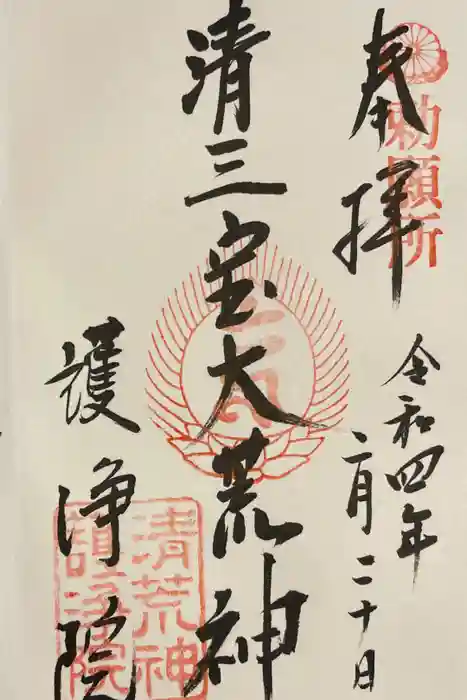 奉拝
勅願所
令和四年
六月二十日
清三宝大荒神
護浄院
清荒神
護浄院